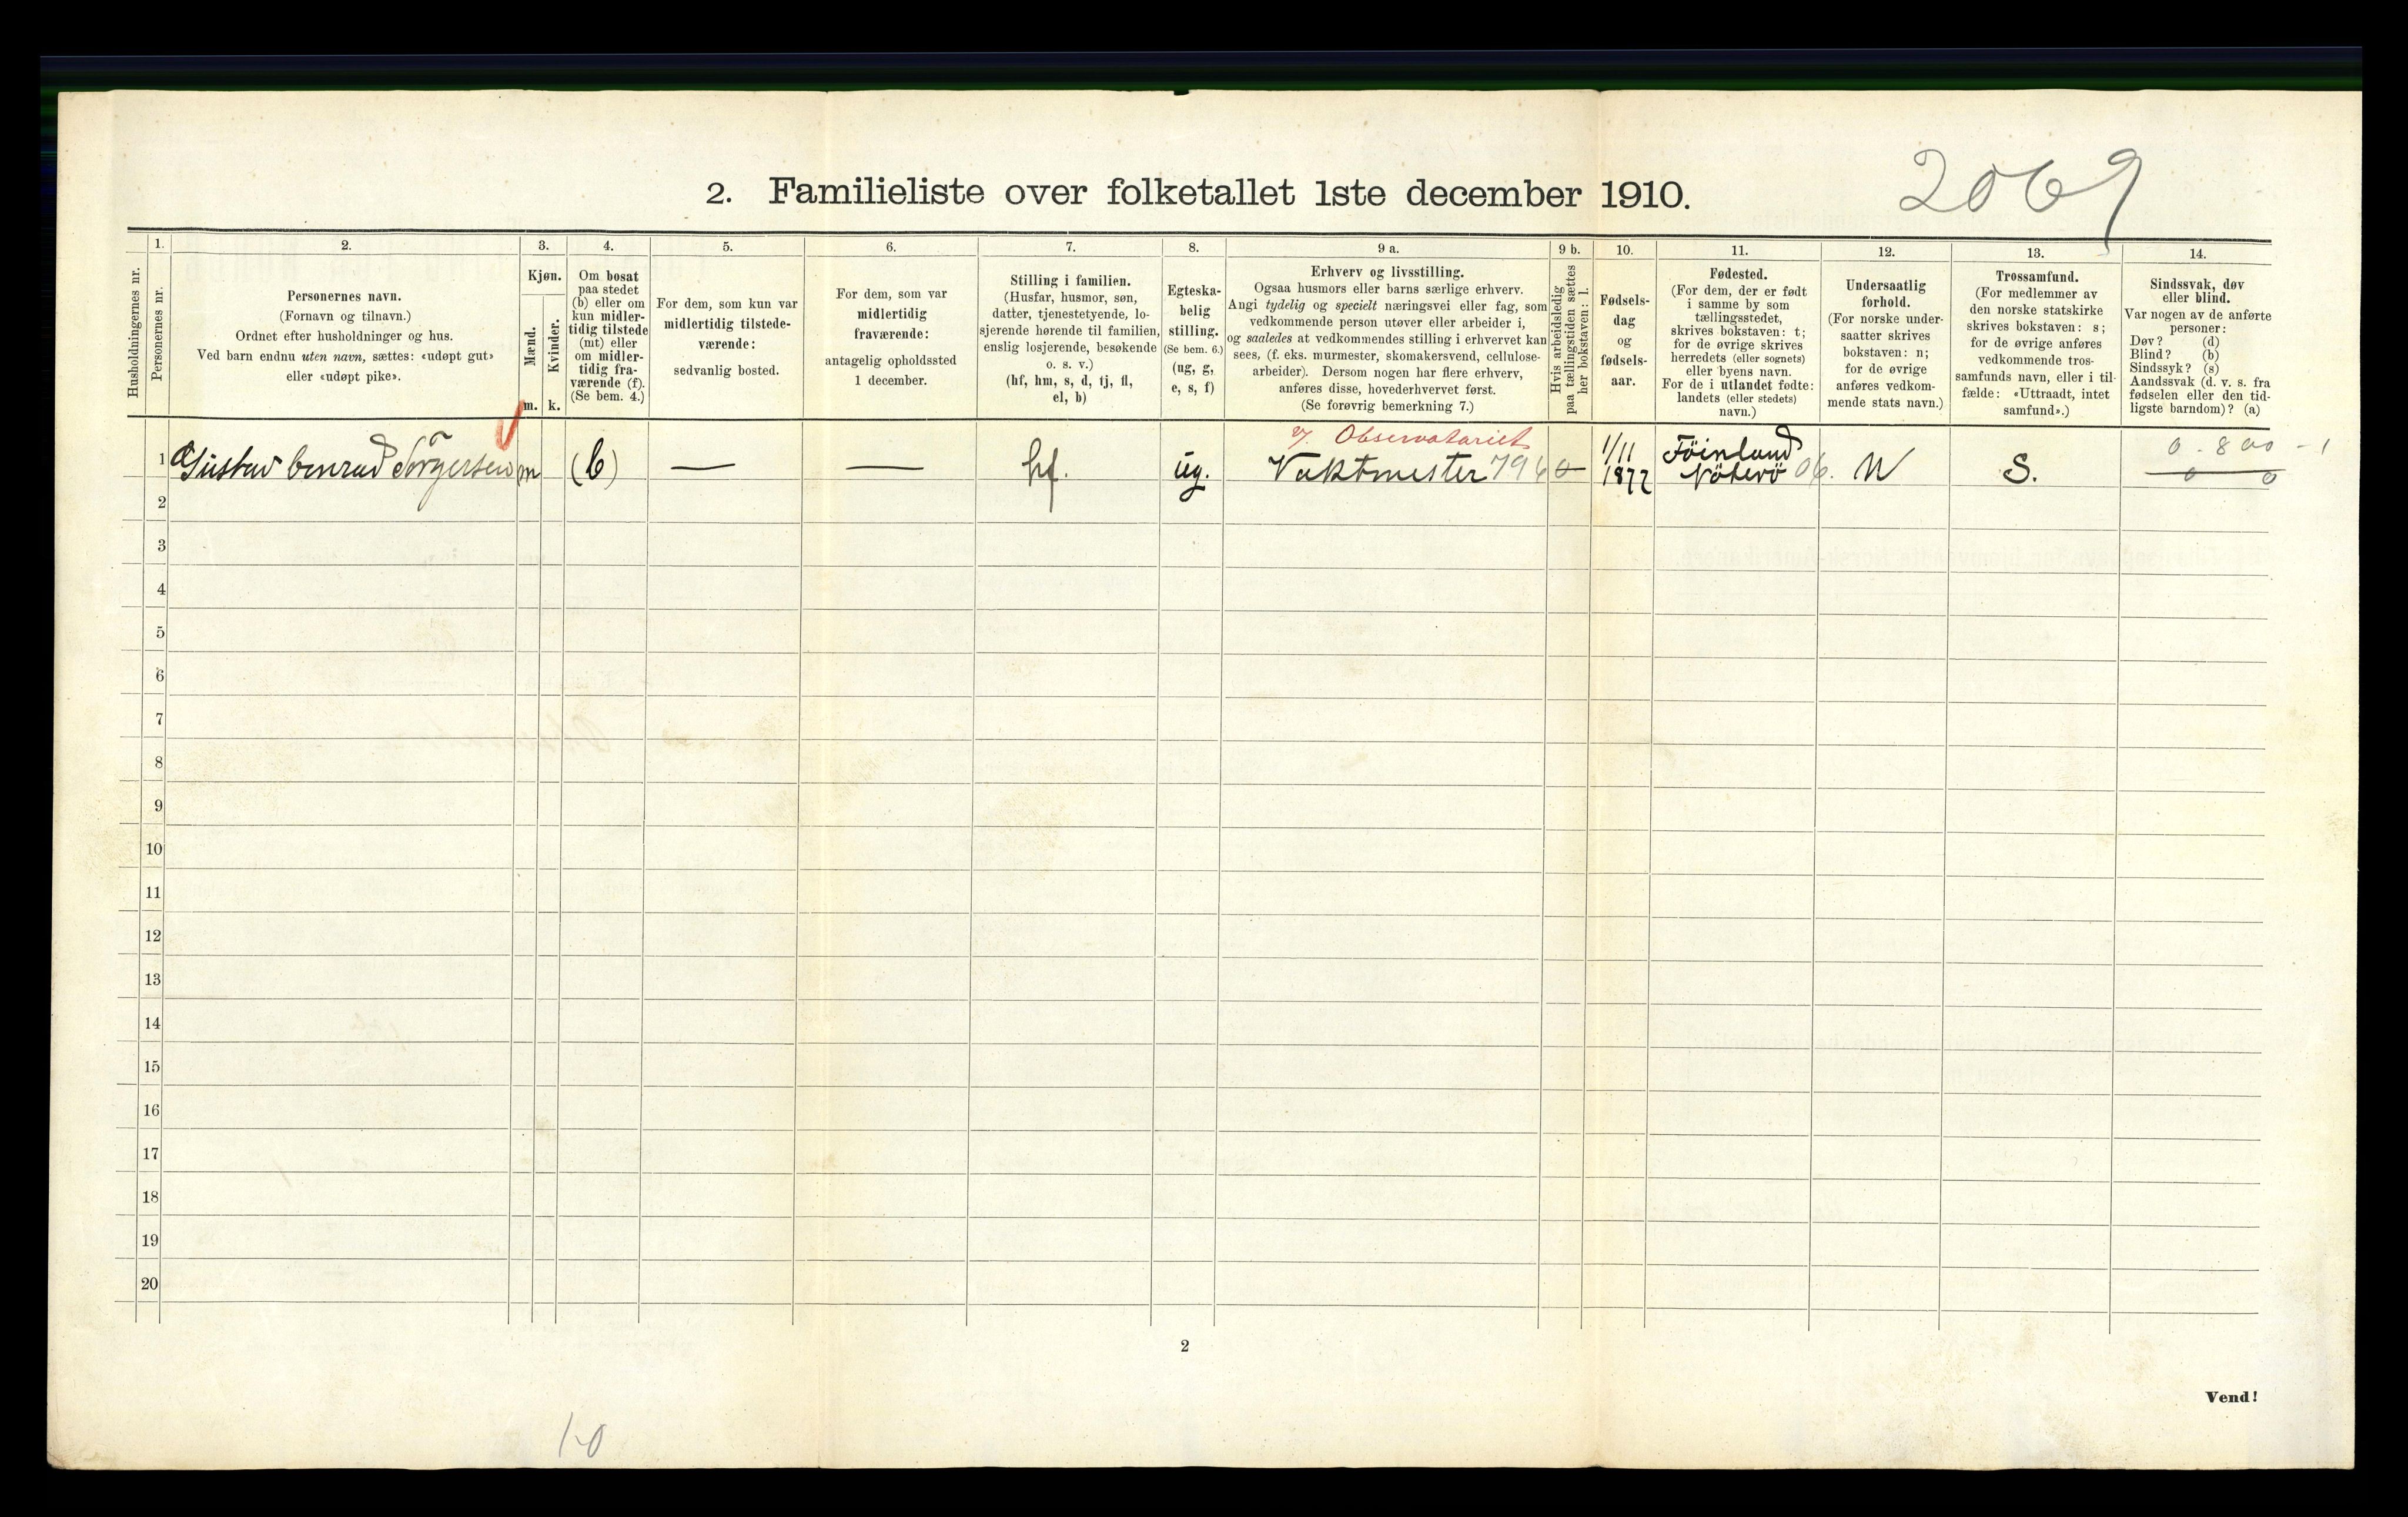 2. Familieliste over folketallet 1ste december 1910.
2069
Husholdningernes nr.
1.
Personernes nr.
2.
Personernes navn.
(Fornavn og tilnavn.)
Ordnet efter husholdninger og hus.
Ved barn endnu uten navn, sættes: «udøpt gut»
eller «udøpt pike».
3.
Kjøn.
Mænd.
Kvinder.
m. k.
4.
Om bosat
paa stedet
(b) eller om
kun midler-
tidig tilstede
(mt) eller
om midler-
tidig fra-
værende (f).
(Se bem. 4.)
5.
For dem, som kun var
midlertidig tilstede-
værende:
sedvanlig bosted.
6.
For dem, som var
midlertidig
fraværende:
antagelig opholdssted
1 december.
7.
Stilling i familien.
(Husfar, husmor, søn,
datter, tjenestetyende, lo-
sjerende hørende til familien,
enslig losjerende, besøkende
o. s. v.)
(hf, hm, s, d, tj, fl,
el, b)
8.
Egteska-
belig
stilling.
(Se bem. 6.)
(ug, g,
e, s, f)
9 a.
Erhverv og livsstilling.
Ogsaa husmors eller barns særlige erhverv.
Angi tydelig og specielt næringsvei eller fag, som
vedkommende person utøver eller arbeider i,
og saaledes at vedkommendes stilling i erhvervet kan
sees, (f. eks. murmester, skomakersvend, cellulose-
arbeider). Dersom nogen har flere erhverv,
anføres disse, hovederhvervet først.
(Se forøvrig bemerkning 7.)
9 b.
Hvis arbeidsledig
paa tællingstiden sættes
her bokstaven: l.
10.
Fødsels-
dag
og
fødsels-
aar.
11.
Fødested.
(For dem, der er født
i samme by som
tællingsstedet,
skrives bokstaven: t;
for de øvrige skrives
herredets (eller sognets)
eller byens navn.
For de i utlandet fødte:
landets (eller stedets)
navn.)
12.
Undersaatlig
forhold.
(For norske under-
saatter skrives
bokstaven: n;
for de øvrige
anføres vedkom-
mende stats navn.)
13.
Trossamfund.
(For medlemmer av
den norske statskirke
skrives bokstaven: s;
for de øvrige anføres
vedkommende tros-
samfunds navn, eller i til-
fælde: «Uttraadt, intet
samfund».)
14.
Sindssvak, døv
eller blind.
Var nogen av de anførte
personer:
Døv? (d)
Blind? (b)
Sindssyk? (s)
Aandssvak (d. v. s. fra
fødselen eller den tid-
ligste barndom)? (a)
v. Observatoriet
1/11 Föinland 0 . 800 - 1
1 Gustav Conrad Sörgersen m (b) — — hf. ug. Vaktmester 796 0 1877 Nöterö 06. N S. 0 0
2
3
4
5
6
7
8
9
10
11
12
13
14
15
16
17
18
19
20
2
Vend!
1-0